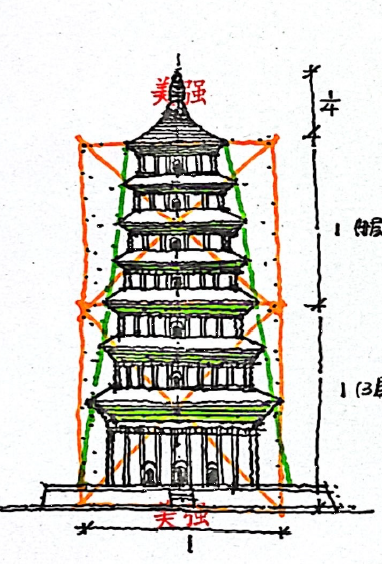 美强
1/4
1 (
1 (3层
美强
1